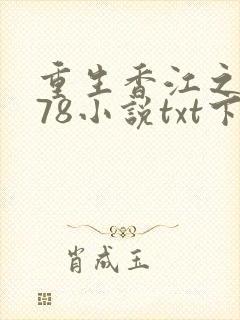 重生香江之
78小说txt下
肖成玉